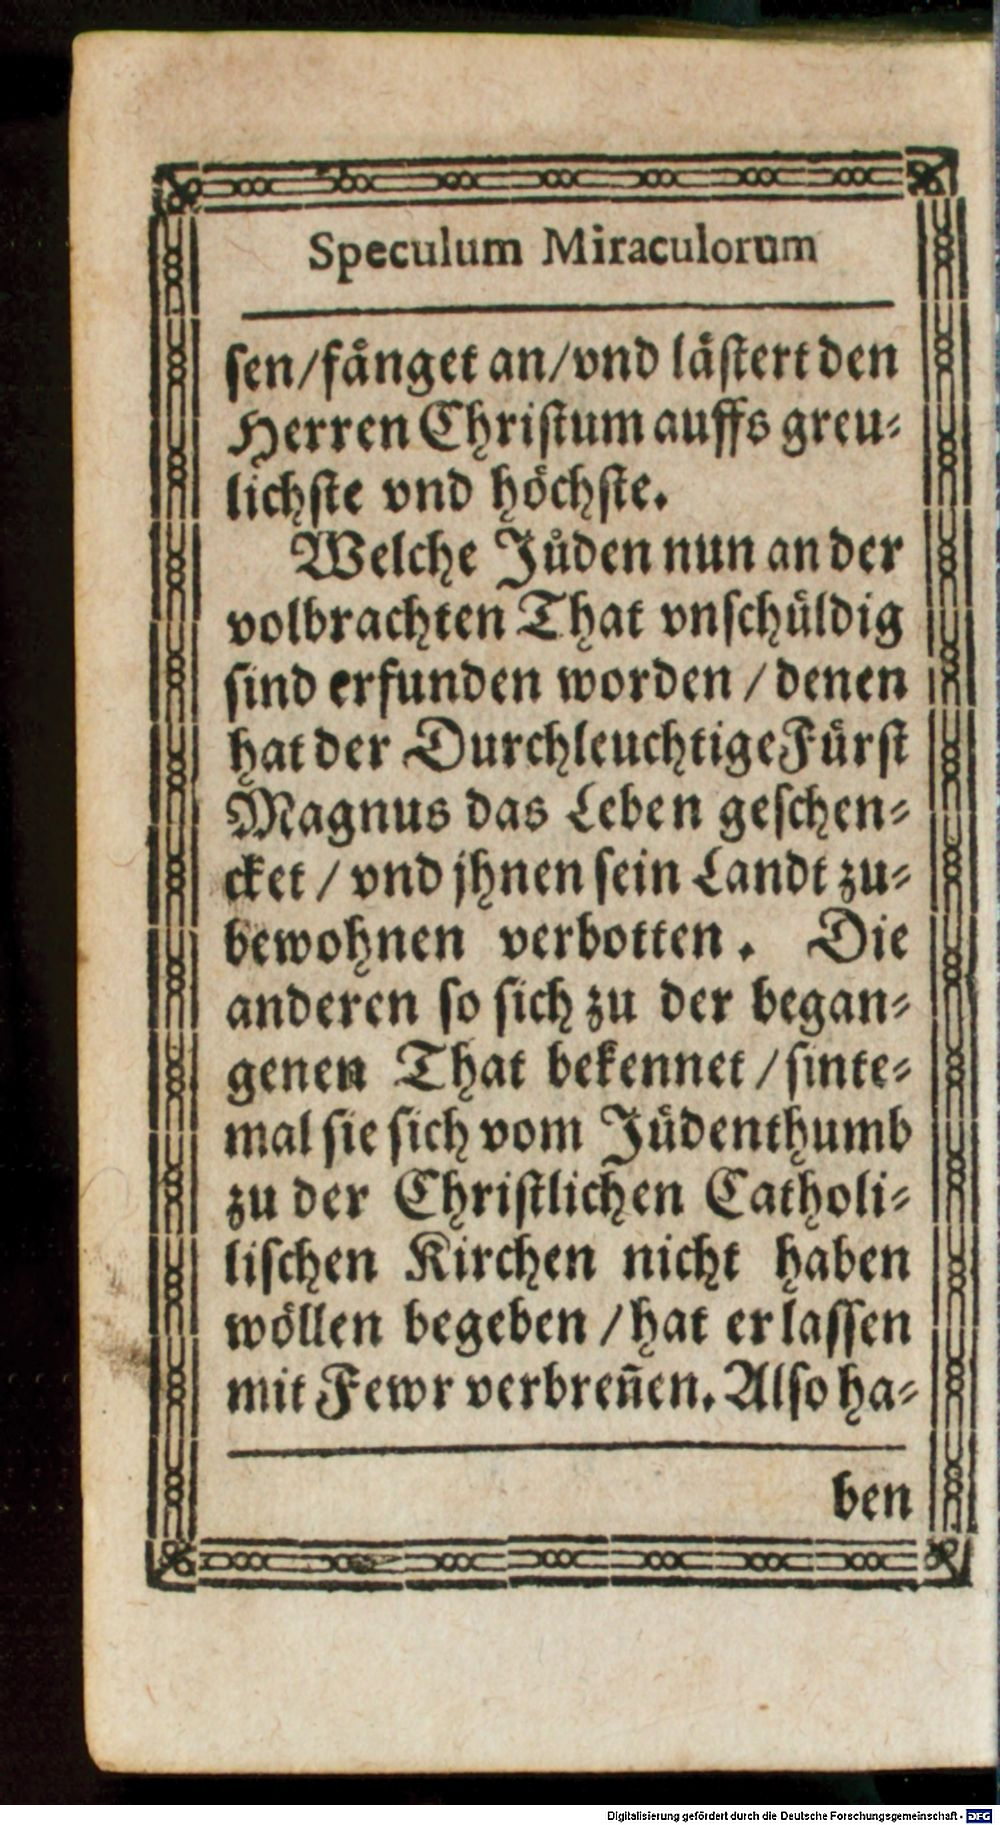 Speculum Miraculorum
ſen/fånget an/vnd låſtert den
Herren Chriſtum auffs greu⸗
lichſte vnd hoͤchſte.
Welche Juͤden nun an der
volbrachten That vnſchuͤldig
ſind erfunden worden / denen
hat der Durchleuchtige Fuͤrſt
Magnus das Leben geſchen⸗
cket / vnd jhnen ſein Landt zu⸗
bewohnen verbotten. Die
anderen ſo ſich zu der began⸗
genen That bekennet / ſinte⸗
mal ſie ſich vom Juͤdenthumb
zu der Chriſtlichen Catholi⸗
liſchen Kirchen nicht haben
woͤllen begeben / hat er laſſen
mit Fewr verbreñen. Alſo ha⸗
ben
Digitalisierung gefördert durch die Deutsche Forschungsgemeinschaft - DFG